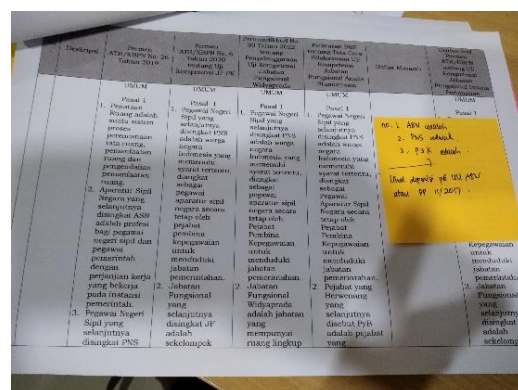 Deskripsi
Permen
ATR/KBPN No. 26
Tahun 2019
Permen
ATR/KBPN No. 6
Tahun 2020
tentang Uji
Kompetensi JF PR
Tahun 2022
tentang
Penyelenggaraan
Uji Kompetensi
Jabatan
Fungsional
Widyaprada
Peraturan
tentang Tata Cara
Pelaksanaan Uji
Kompetensi
Jabatan
Fungsional
Daftar Masalah
Permen
ATR/KBPN
tentang Uji
Kompetensi
Jabatan
UMUM
Pasal 1
1. Penataan
Ruang adalah
suatu sistem
proses
perencanaan
tata ruang,
pemanfaatan
ruang dan
pengendalian
pemanfaatan
ruang.
2. Aparatur Sipil
Negara yang
selanjutnya
disingkat ASN
adalah profesi
bagi pegawai
negeri sipil dan
pegawai
pemerintah
dengan
perjanjian kerja
yang bekerja
pada instansi
pemerintah.
3. Pegawai Negeri
Sipil yang
selanjutnya
disingkat PNS
UMUM
Pasal 1
1. Pegawai Negeri
Sipil yang
selanjutnya
disingkat PNS
adalah warga
negara
Indonesia yang
memenuhi
syarat tertentu,
diangkat
sebagai
pegawai
aparatur sipil
negara secara
tetap oleh
pejabat
pembina
kepegawaian
untuk
menduduki
jabatan
pemerintahan.
2. Jabatan
Fungsional
yang
selanjutnya
disingkat JF
adalah
sekelompok
UMUM
Pasal 1
1. Pegawai Negeri
Sipil yang
selanjutnya
disingkat PNS
adalah warga
negara
Indonesia yang
memenuhi
syarat tertentu,
diangkat
sebagai
pegawai
aparatur sipil
negara secara
tetap oleh
Pejabat
Pembina
Kepegawaian
untuk
menduduki
jabatan
pemerintahan.
2. Jabatan
Fungsional
Widyaprada
adalah jabatan
yang
mempunyai
ruang lingkup
UMUM
Pasal 1
1. Pegawai Negeri
Sipil yang
selanjutnya
disingkat PNS
adalah warga
negara
Indonesia yang
memenuhi
syarat tertentu,
diangkat
sebagai
Pegawai
Aparatur Sipil
Negara secara
tetap oleh
Pejabat
Pembina
Kepegawaian
untuk
menduduki
jabatan
pemerintahan.
2. Pejabat yang
Berwenang
yang
selanjutnya
disebut PyB
adalah pejabat
yang
UMUM
Pasal 1
no. 1. ASN adalah
2. PNS adalah
3. P3K adalah
Lihat definisi pd UU ASN
atau PP 11/2017.
Kepegawaian
untuk
menduduki
jabatan
pemerintahan.
2. Jabatan
Fungsional
yang
selanjutnya
disingkat
adalah